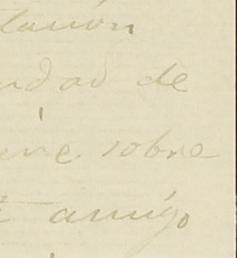 lación
ndad de
ere sobre
amigo